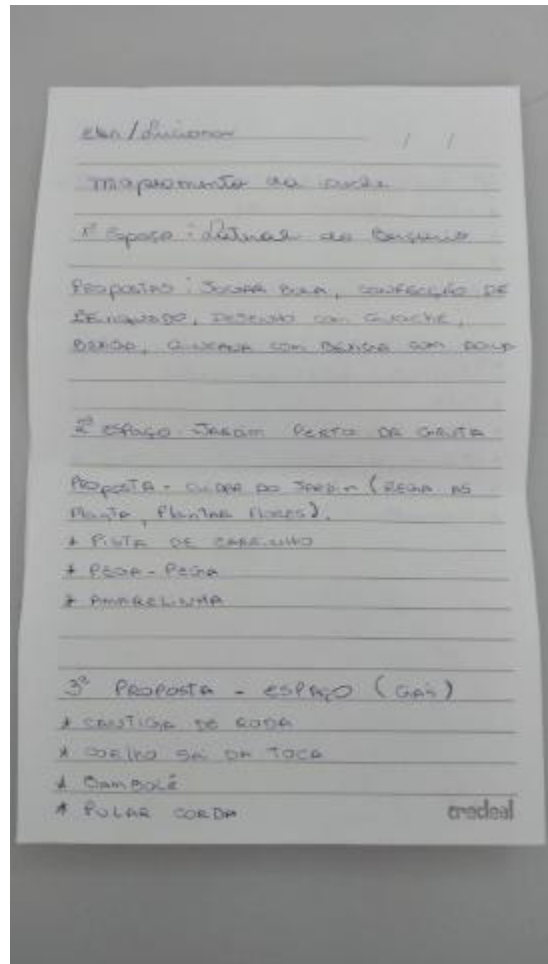 Elen / Luciana / /
mapeamento da
1º Espaço: Lateral do Berçário
Propostas: JOGAR BOLA, CONFECÇÃO DE
BRINQUEDO, DESENHO com GUACHE,
BEXIGA, GINCANA COM BEXIGA COM ÁGUA
2º ESPAÇO JARDIM PERTO DA GRUTA
PROPOSTA - CUIDAR DO JARDIM (REGA AS
Planta, Plantar Flores).
* PISTA DE CARRINHO
* PEGA - PEGA
* AMARELINHA
3ª PROPOSTA - ESPAÇO (GÁS)
* CANTIGA DE RODA
* COELHO SAI DA TOCA
* BAMBOLÊ
* PULAR CORDA
credeal